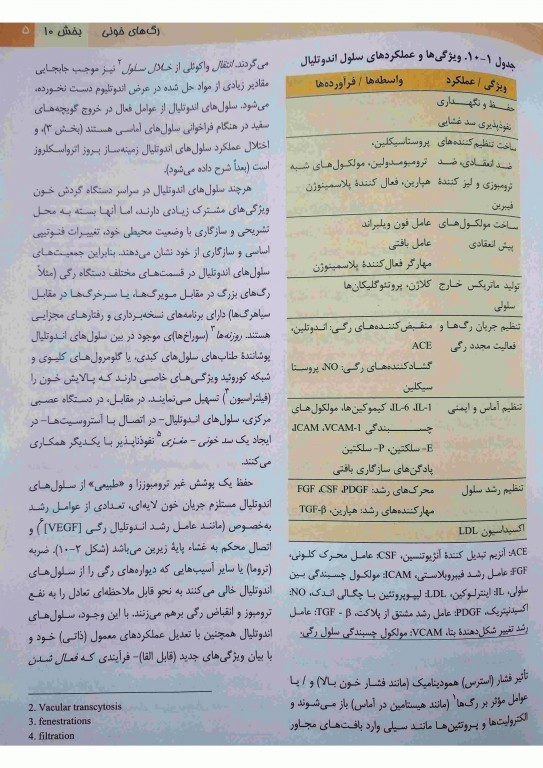 رگ‌های خونی بخش ۱۰ ۵
جدول ۱-۱۰. ویژگی‌ها و عملکردهای سلول اندوتلیال
ویژگی / عملکرد واسطه‌ها / فرآورده‌ها
حفظ و نگهداری
نفوذپذیری سد غشایی
ساخت تنظیم‌کننده‌های پروستاسیکلین،
ضد انعقادی، ضد ترومبومدولین، مولکول‌های شبه
ترومبوزی و لیز کنندهٔ هپارین، فعال کنندهٔ پلاسمینوژن
فیبرین
ساخت مولکول‌های عامل فون ویلبراند
پیش انعقادی عامل بافتی
مهارگر فعال‌کنندهٔ پلاسمینوژن
تولید ماتریکس خارج کلاژن، پروتئوگلیکان‌ها
سلولی
تنظیم جریان رگ‌ها و منقبض‌کننده‌های رگی: اندوتلین،
فعالیت مجدد رگی ACE
گشادکننده‌های رگی: NO، پروستا
سیکلین
تنظیم آماس و ایمنی IL-1، IL-6، کیموکین‌ها، مولکول‌های
چسبندگی ICAM ،VCAM-1،
E- سلکتین، P- سلکتین
پادگن‌های سازگاری بافتی
تنظیم رشد سلول محرک‌های رشد: FGF ،CSF ،PDGF
مهارکننده‌های رشد: هپارین، TGF-β
اکسیداسیون LDL
ACE: آنزیم تبدیل کنندهٔ آنژیوتنسین، CSF: عامل محرک کلونی،
FGF: عامل رشد فیبروبلاستی، ICAM: مولکول چسبندگی بین
سلولی، IL: اینترلوکین، LDL: لیپوپروتئین با چگالی اندک، NO:
اکسیدنیتریک، PDGF: عامل رشد مشتق از پلاکت، TGF - β: عامل
رشد تغییر شکل‌دهندهٔ بتا، VCAM: مولکول چسبندگی سلول رگی.
تأثیر فشار (استرس) همودینامیک (مانند فشار خون بالا) و / یا
عوامل مؤثر بر رگ‌ها۱ (مانند هیستامین در آماس) باز می‌شوند و
الکترولیت‌ها و پروتئین‌ها مانند سیلی وارد بافت‌های مجاور
می‌گردند. انتقال واکوئلی از خلال سلول۲ نیز موجب جابجایی
مقادیر زیادی از مواد حل شده در عرض اندوتلیوم دست نخورده،
می‌شود. سلول‌های اندوتلیال از عوامل فعال در خروج گویچه‌های
سفید در هنگام فراخوانی سلول‌های آماسی هستند (بخش ۳)، و
اختلال عملکرد سلول‌های اندوتلیال زمینه‌ساز بروز آترواسکلروز
است (بعداً شرح داده می‌شود).
هرچند سلول‌های اندوتلیال در سراسر دستگاه گردش خون
ویژگی‌های مشترک زیادی دارند، اما آنها بسته به محل
تشریحی و سازگاری با وضعیت محیطی خود، تغییرات فنوتیپی
اساسی و سازگاری از خود نشان می‌دهند. بنابراین جمعیت‌های
سلول‌های اندوتلیال در قسمت‌های مختلف دستگاه رگی (مثلاً
رگ‌های بزرگ در مقابل مویرگ‌ها، یا سرخرگ‌ها در مقابل
سیاهرگ‌ها) دارای برنامه‌های نسخه‌برداری و رفتارهای مجزایی
هستند. روزنه‌ها۳ (سوراخ‌ها)ی موجود در بین سلول‌های اندوتلیال
پوشانندهٔ طناب‌های سلول‌های کبدی، یا گلومرول‌های کلیوی و
شبکه کوروئید ویژگی‌های خاصی دارند که پالایش خون را
(فیلتراسیون۴) تسهیل می‌نمایند. در مقابل، در دستگاه عصبی
مرکزی، سلول‌های اندوتلیال- در اتصال با آستروسیت‌ها- در
ایجاد یک سد خونی - مغزی۵ نفوذناپذیر با یکدیگر همکاری
می‌کنند.
حفظ یک پوشش غیر ترومبوززا و «طبیعی» از سلول‌های
اندوتلیال مستلزم جریان خون لایه‌ای، تعدادی از عوامل رشد
به‌خصوص (مانند عامل رشد اندوتلیال رگی [VEGF]۶) و
اتصال محکم به غشاء پایهٔ زیرین می‌باشد (شکل ۲-۱۰). ضربه
(تروما) یا سایر آسیب‌هایی که دیواره‌های رگی را از سلول‌های
اندوتلیال خالی می‌کنند به نحو قابل ملاحظه‌ای تعادل را به نفع
ترومبوز و انقباض رگی برهم می‌زنند. با این وجود، سلول‌های
اندوتلیال همچنین با تعدیل عملکردهای معمول (ذاتی) خود و
با بیان ویژگی‌های جدید (قابل القا)- فرآیندی که فعال شدن
2. Vacular transcytosis
3. fenestrations
4. filtration